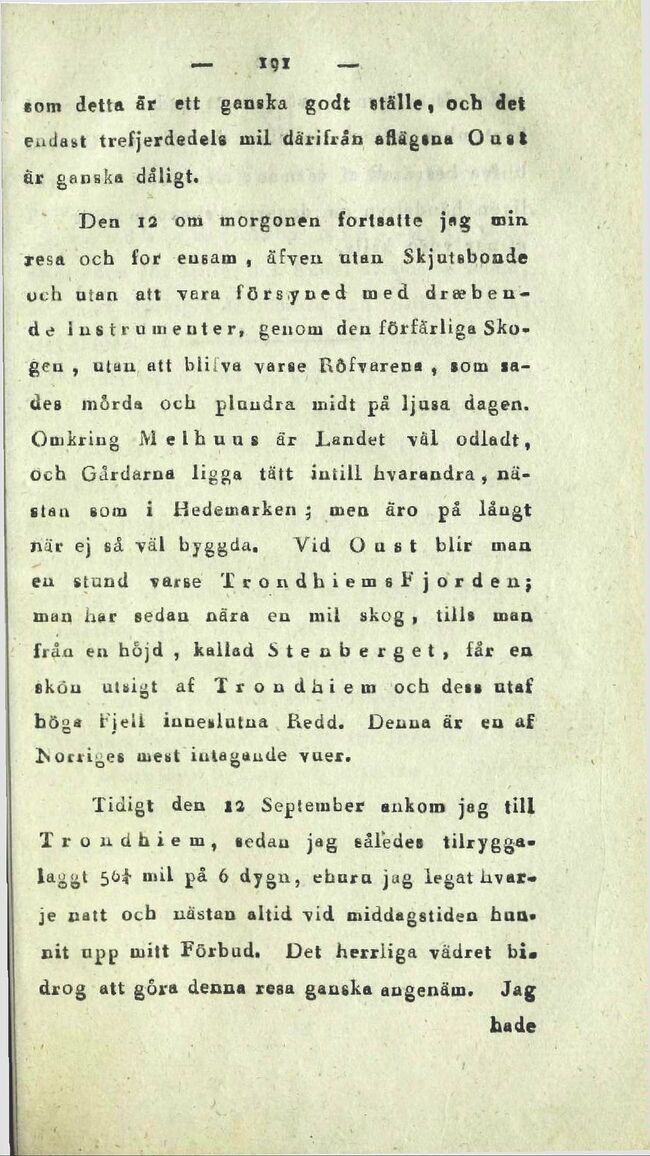 — 191 —
som detta är ett ganska godt ställe, och det
endast trefjerdedels mil därifrån aflägsna Oust
är ganska dåligt.
Den 12 om morgonen fortsatte jag min
resa och for ensam, äfven utan Skjutsbonde
och utan att vara försyned med dræben-
de Instrumenter, genom den förfärliga Sko-
gen, utan att blifva varse Röfvarena, som sa-
des mörda och plundra midt på ljusa dagen.
Omkring Melhuus är Landet väl odladt,
och Gårdarna ligga tätt intill hvarandra, nä-
stan som i Hedemarken; men äro på långt
när ej så väl byggda. Vid Oust blir man
en stund varse TrondhiemsFjorden;
man har sedan nära en mil skog, tills man
från en höjd, kallad Stenberget, får en
skön utsigt af Trondhiem och dess utaf
höga Fjell inneslutna Redd. Denna är en af
Norriges mest intagande vuer.
Tidigt den 12 September ankom jag till
Trondhiem, sedan jag således tilrygga-
laggt mil på 6 dygn, ehuru jag legat hvar-
je natt och nästan altid vid middagstiden hun-
nit upp mitt Förbud. Det herrliga vädret bi-
drog att göra denna resa ganska angenäm. Jag
hade